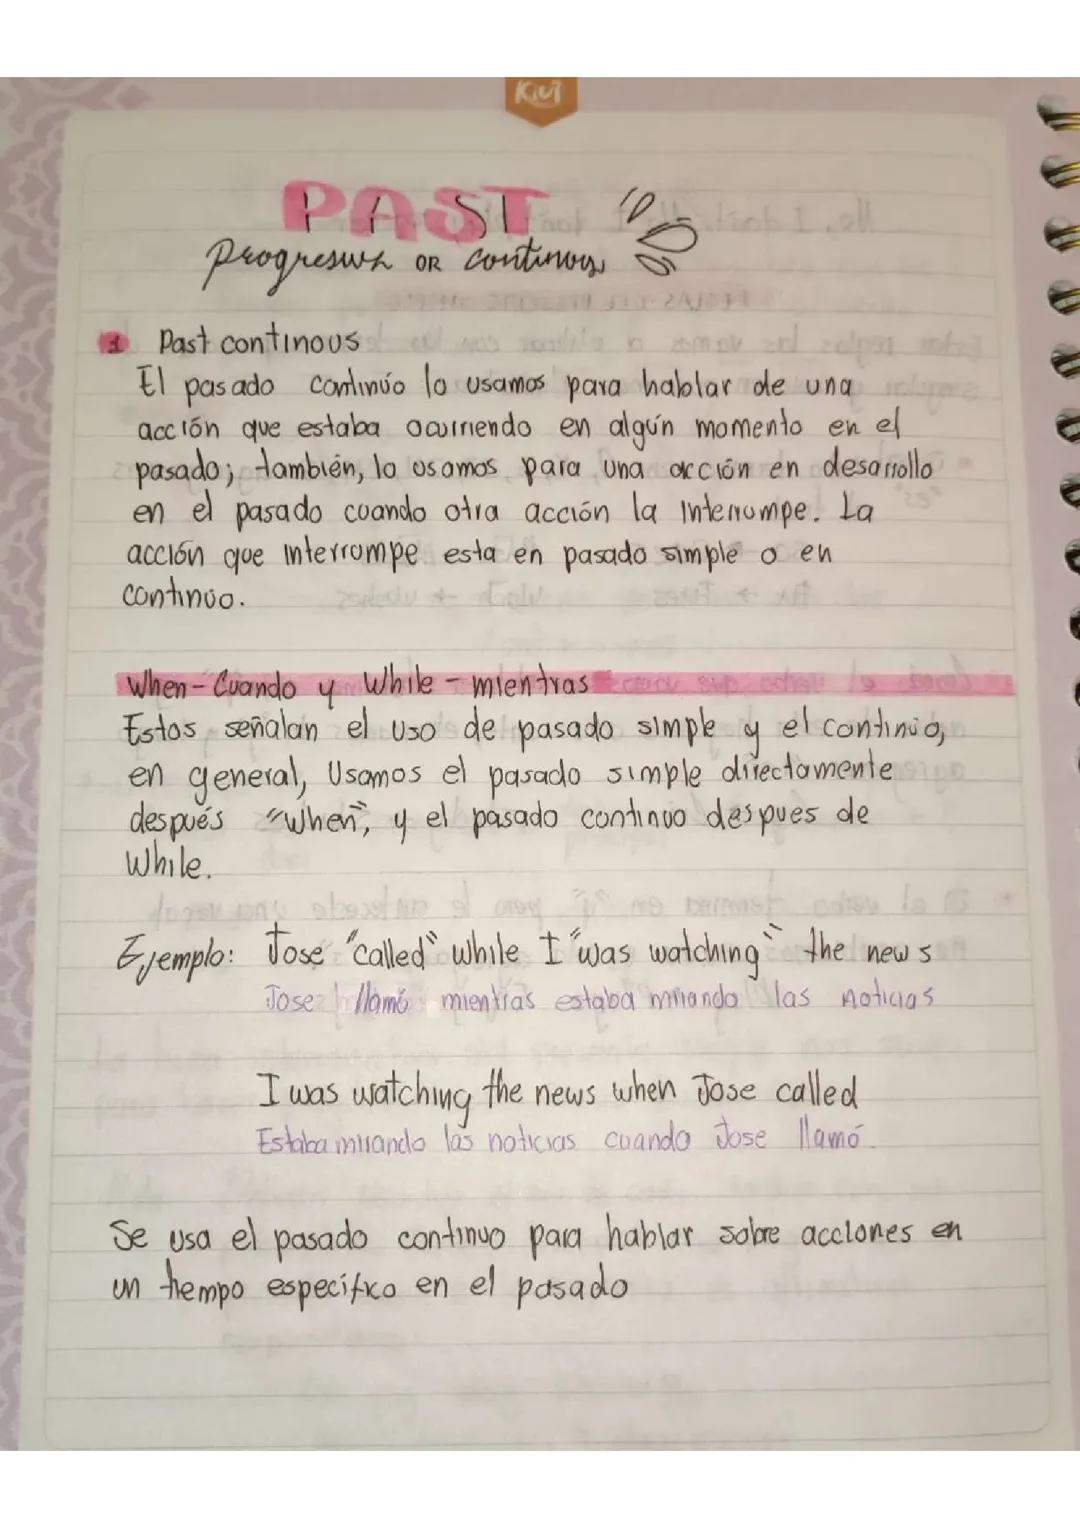 Kiut
PAST
Progresive OR continous
1 Past continous
El pasado continúo lo usamos para hablar de una
acción que estaba ocurriendo en algún momento en el
pasado; también, lo usamos para una acción en desarrollo
en el pasado cuando otra acción la interrumpe. La
acción que interrumpe esta en pasado simple o en
continuo.
When - Cuando y While - mientras
Estos señalan el uso de pasado simple y el continúo,
en general, Usamos el pasado simple directamente
después "when", y el pasado continuo despues de
While.
Ejemplo: Jose "called" while I "was watching" the news
Jose llamó mientras estaba mirando las noticias
I was watching the news when Jose called
Estaba mirando las noticias cuando Jose llamó.
Se usa el pasado continuo para hablar sobre acciones en
un tiempo específico en el pasado